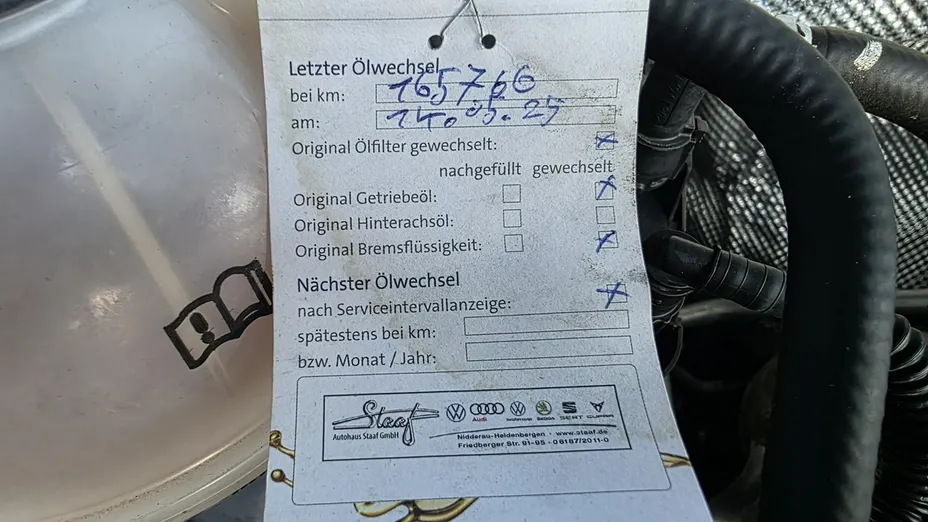 Letzter Ölwechsel
bei km: 165766
am: 14.05.25
Original Ölfilter gewechselt: x
nachgefüllt gewechselt
Original Getriebeöl: x
Original Hinterachsöl:
Original Bremsflüssigkeit: x
Nächster Ölwechsel
nach Serviceintervallanzeige: x
spätestens bei km:
bzw. Monat / Jahr:
Staaf
Autohaus Staaf GmbH
Audi SKODA SEAT CUPRA
Nidderau-Heldenbergen · www.staaf.de
Friedberger Str. 91-95 · 06187/2011-0